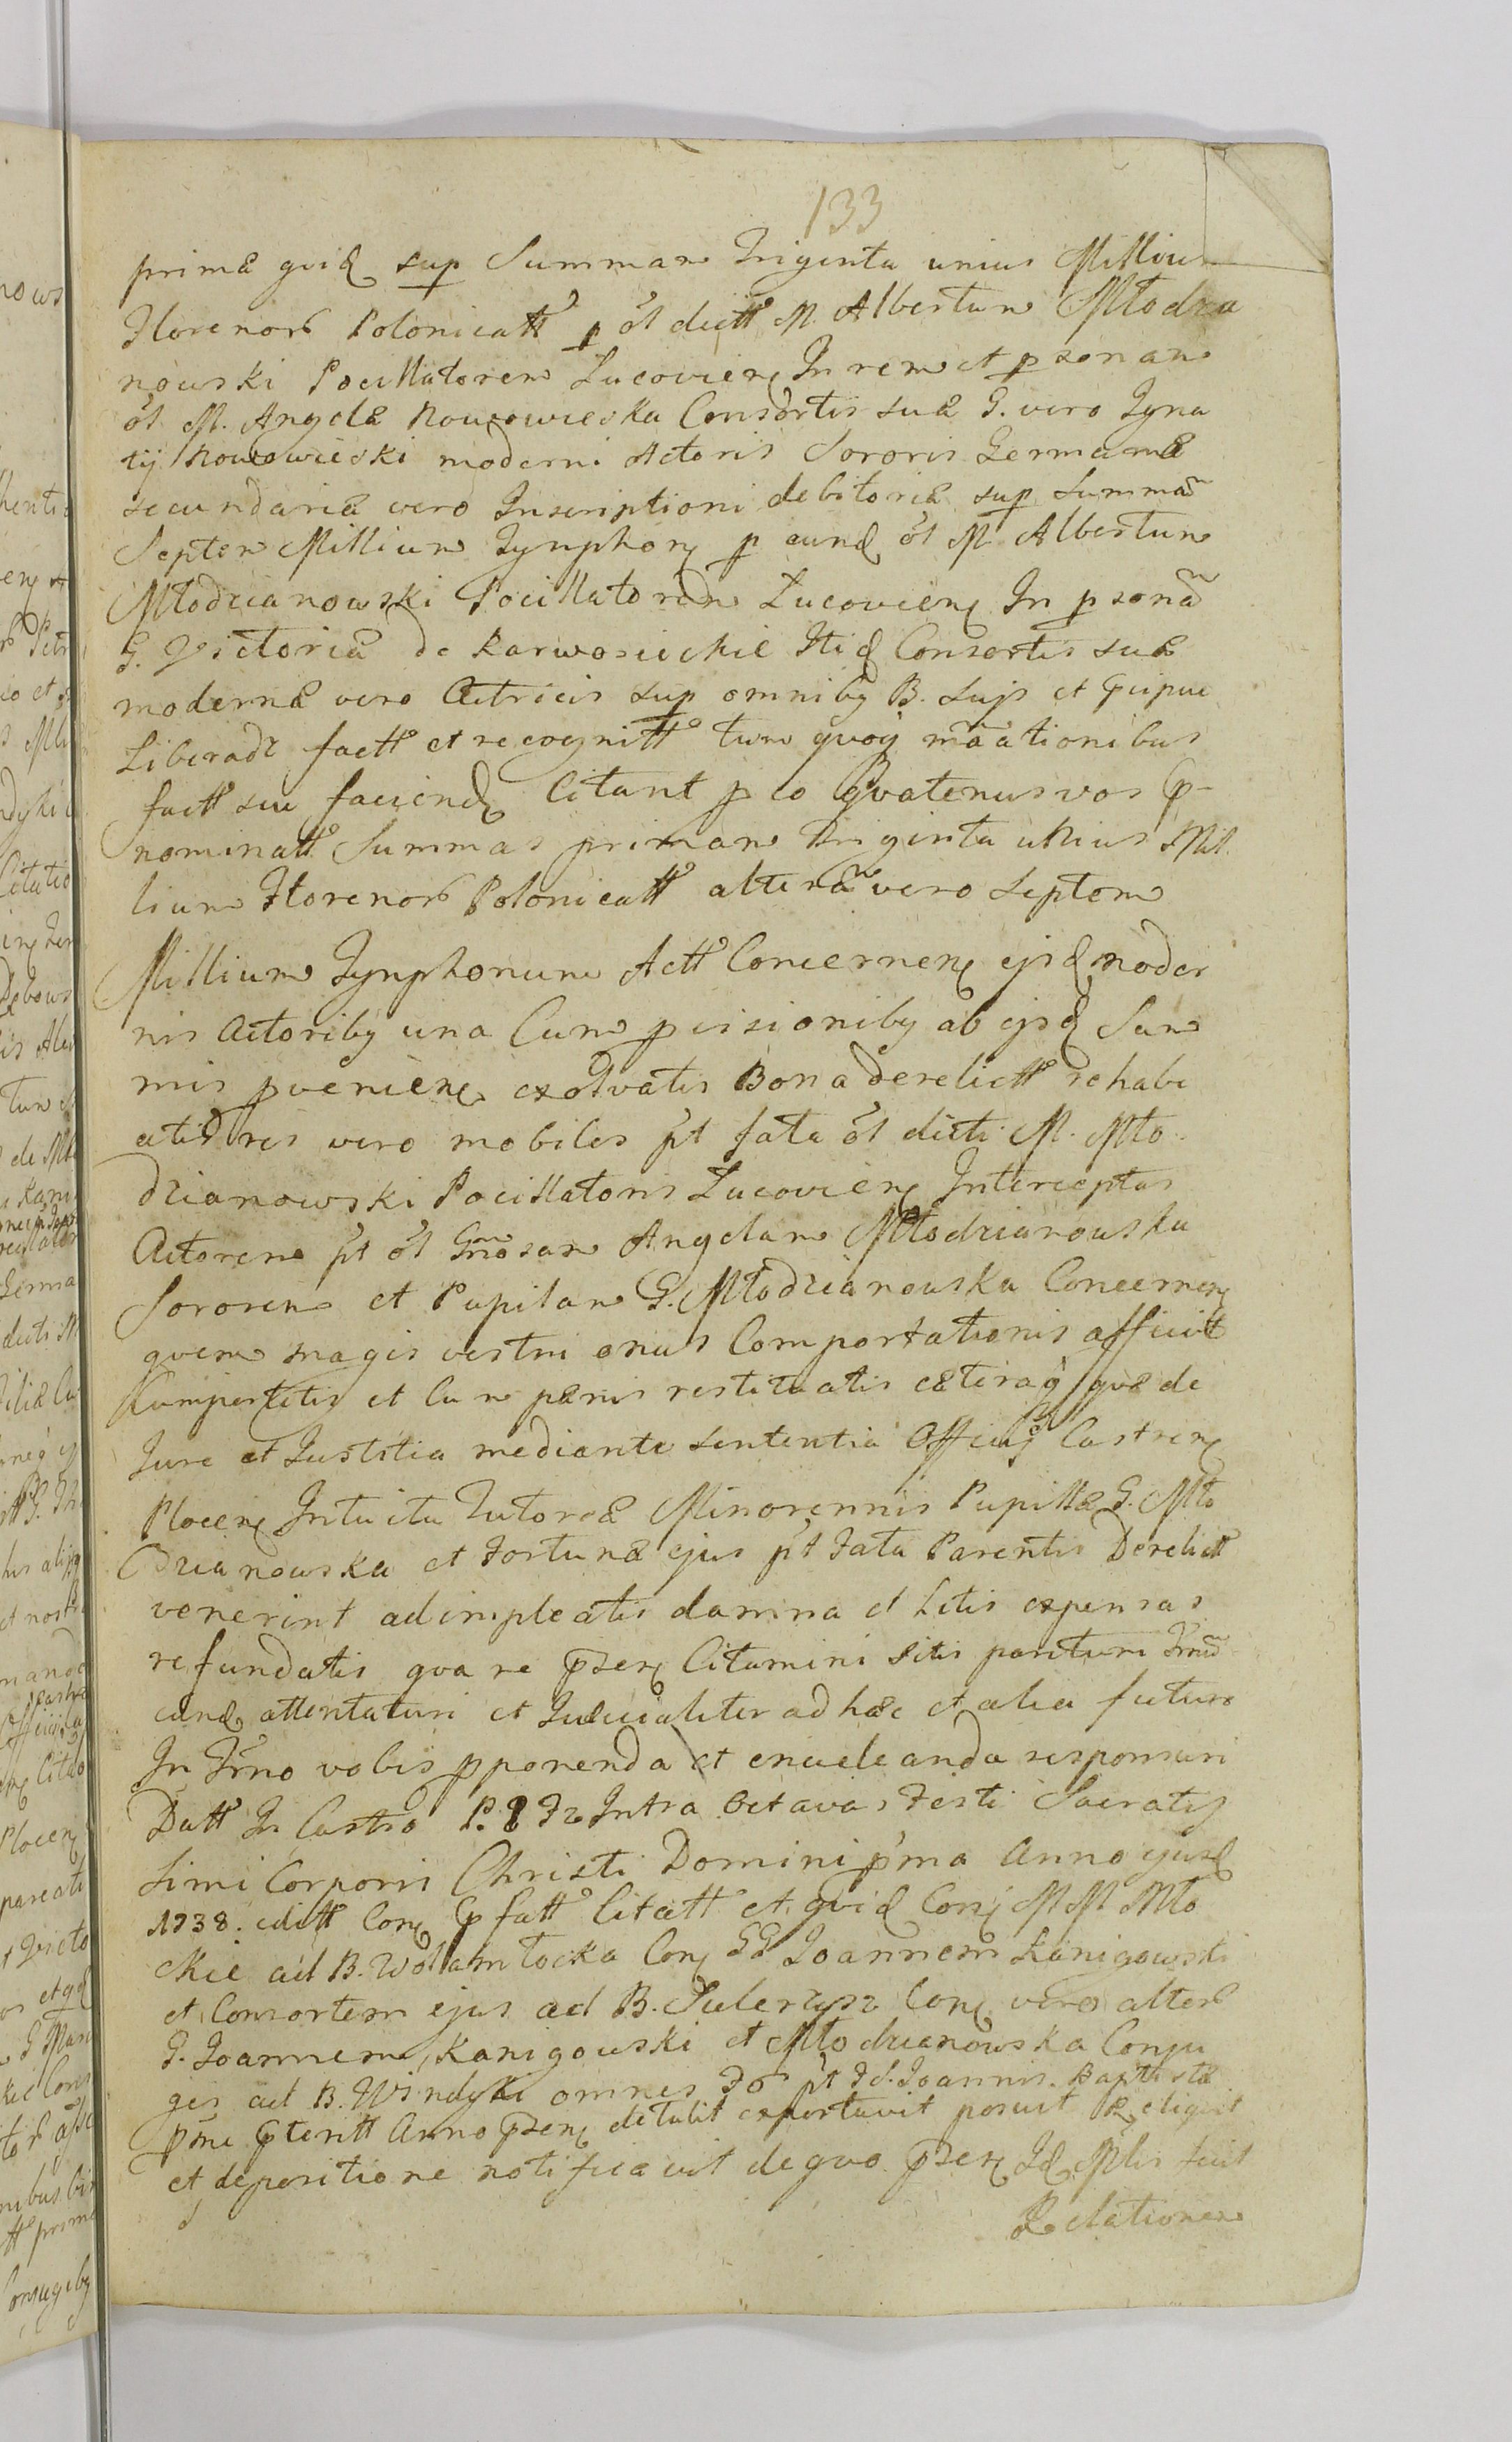 133
primæ quid sup Summam Triginta unius Millium
Florenor Polonicatt p ol dictt M. Albertum Młodzia
nowski Pocillatorem Łucovien In rem et personam
ol M. Angelæ Nowowieska Consortis suæ G. vero Igna
tij Nowowieski moderni Actoris Sororis Germanæ
secundariæ vero Inscriptioni debitoriæ sup Summã
Septem Millium Tynphor p eund ol M Albertum
Młodzianowski Pocillatorem Łucovien In personã
G. Victoriæ de Karwosieckie Itid Consortis suæ
modernæ vero Actricis sup omniby B. suis et præcipue
Liberadz factt et recognitt tum quoq mãationibus
factt seu faciend Citant p eo Quatenus vos præ-
nominatt Summas primam Triginta unius Mil-
lium Florenor Polonicatt alterã vero Septem
Millium Tynphonum Actt Concernen ejsd moder
nis Actoriby una Cum provisioniby ab ejsd Sum
mis provenien exolvatis Bona derelictt rehabe
atis res vero mobiles pt fata ol dicti M. Mło-
dzianowski Pocillatoris Łucovien Interceptas
Actorem pt ol Gnosam Angelam Młodzianowska
Sororem et Pupilam G. Młodzianowska Concernen
quem magis vestri onus Comportationis afficit
Kumportetis et Cum pænis restituatis cæteraq quæ de
Jure et Justitia mediante sententia Officij Castren
Plocen Intuitu Tutoreæ Minorennis Pupillæ G. Mło
dzianowska et Fortunæ ejus pt Fata Parentis Derelictt
venerint adimpleatis damna et Litis expensas
refundatis qua re præsen Citamini sitis parituri Trmũ
eund attentaturi et Judicialiter ad hæc et alia futuro
In Trno vobis pponenda et enucleanda responsuri
Datt In Castro P. Fr Intra Octavas Festi Sacratis
simi Corporis Christi Domini pma Anno ejusd
1738. editt Con præfatt Citatt et quid Con M M Mło
ckie ad B. Wolam łocka Con GG Joannem Kanigowski
et Consortem ejus ad B. Sulerzysz Con vero alter
G. Joannem Kanigowski et Młodzianowska Conju
ges ad B. Windyki omnes Fo pt Fd. Joannis Baptistæ
pme præteritt Anno præsen detulit exportavit posuit Reliquit
et depositione notificavit de quo præsen Id Mlis fecit
Relationem